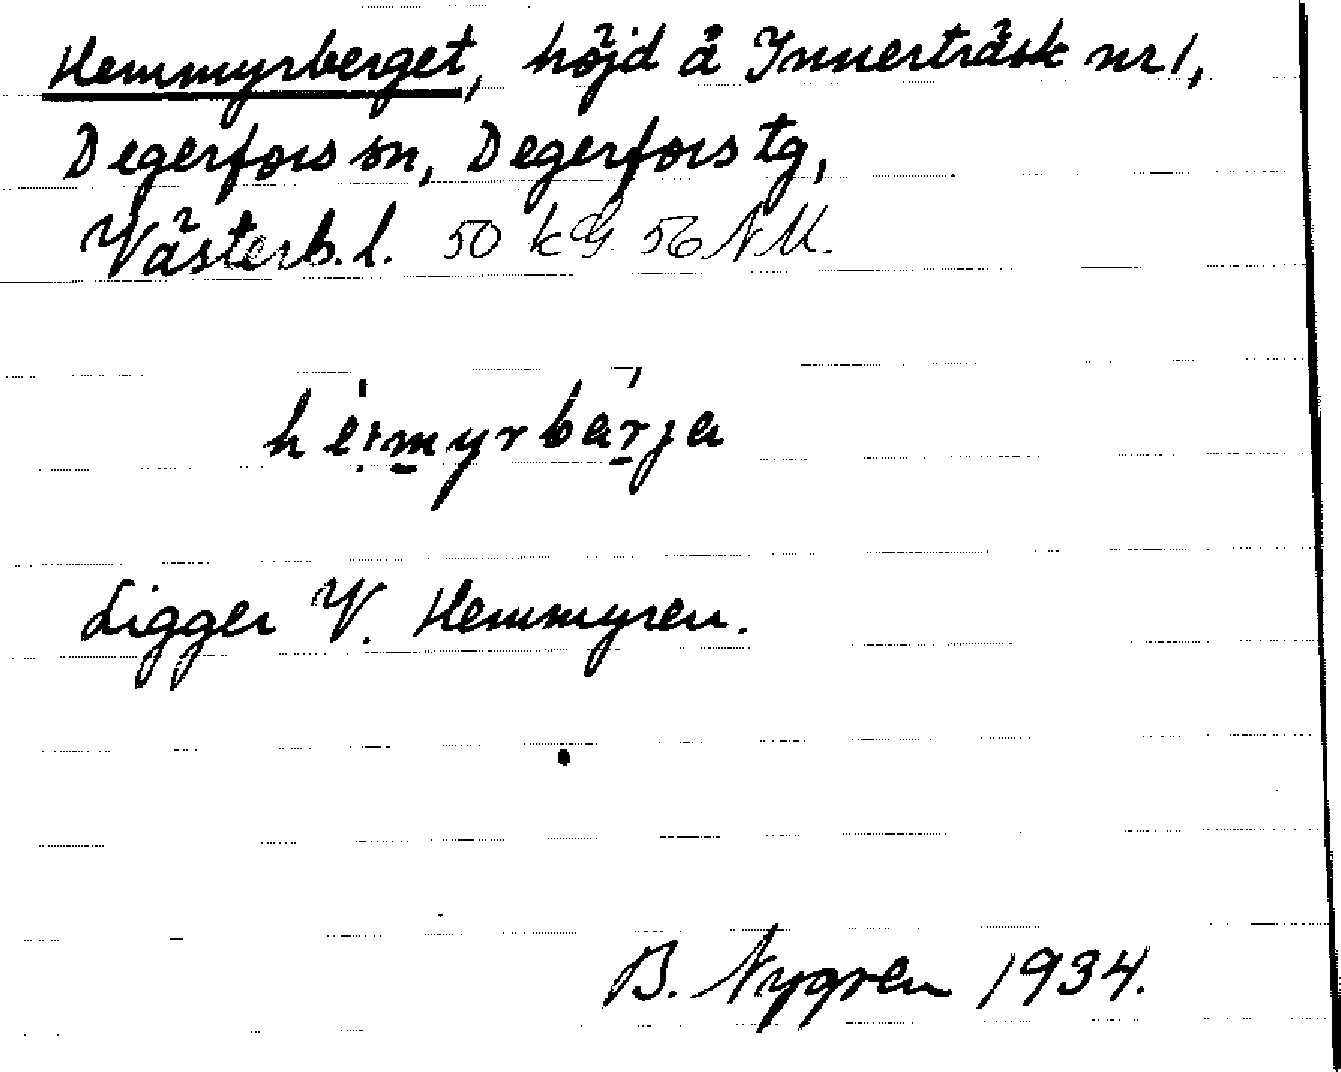 Hemmyrberget, höjd å Innerträsk nr 1,
Degerfors sn, Degerfors tg,
Västerb. l. 50 kg. 56 NU.
heimyrbärja
Ligger V. Hemmyren.
B. Nygren 1934.